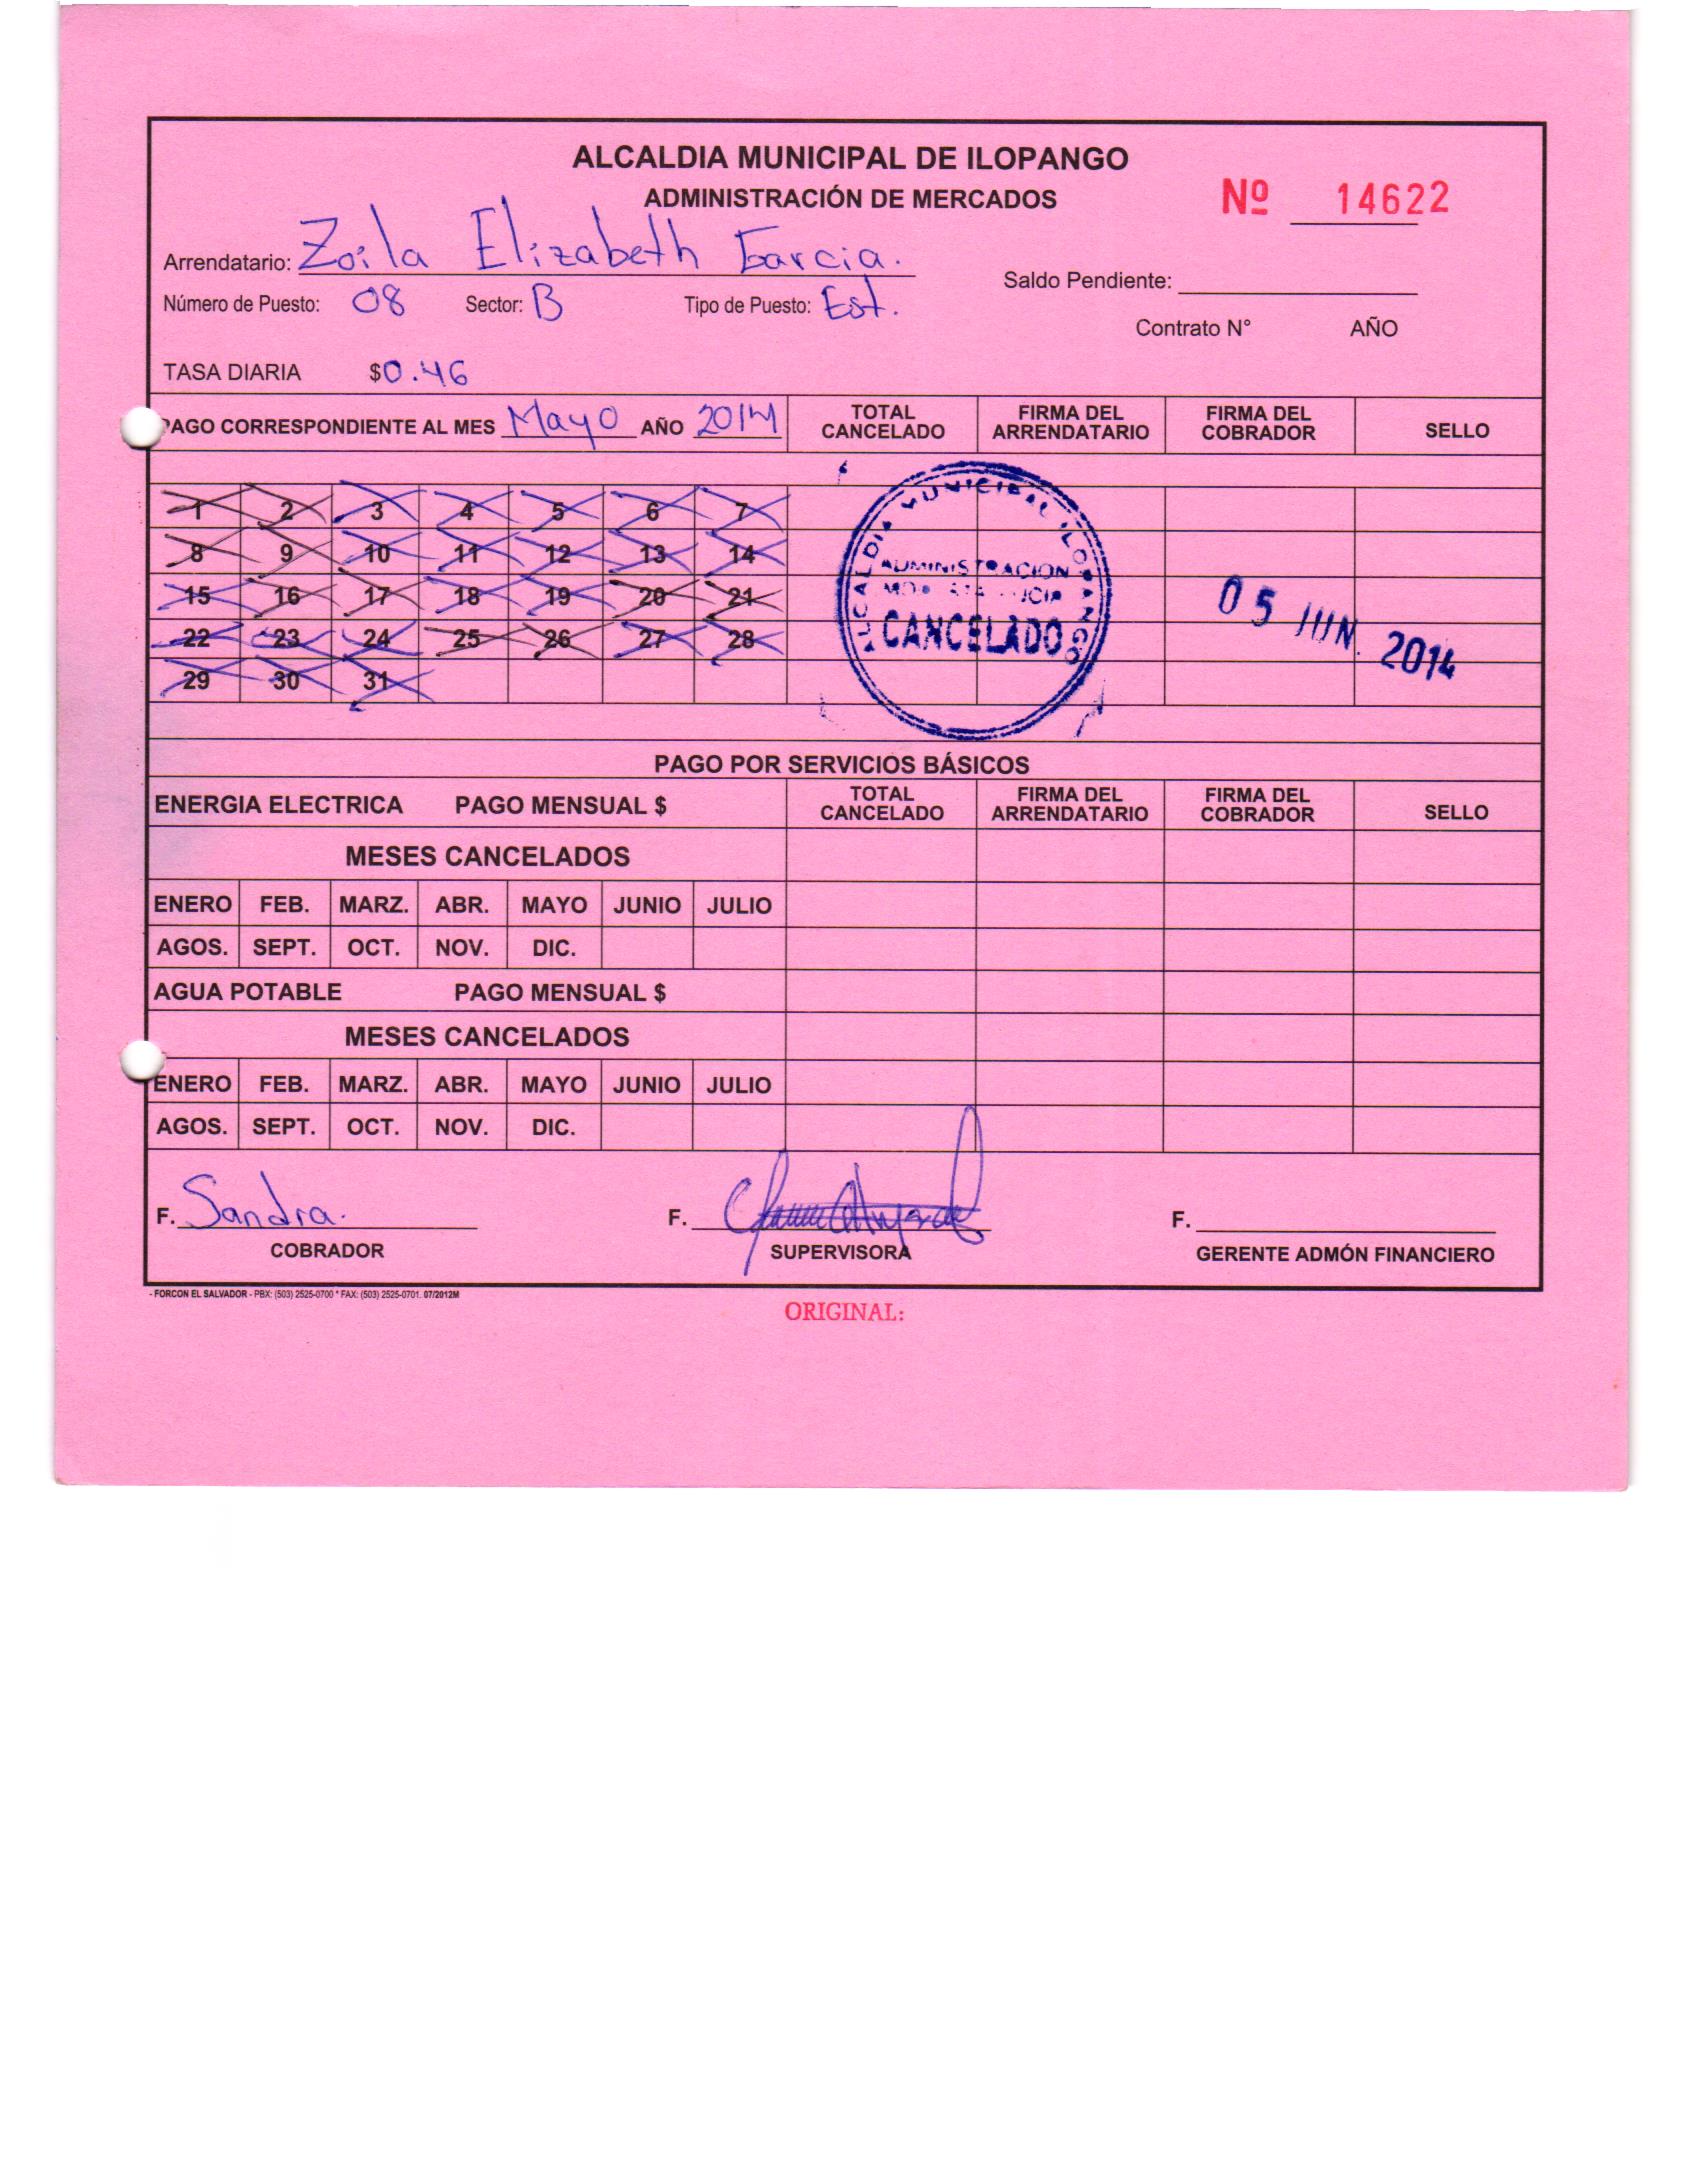 ALCALDIA MUNICIPAL DE ILOPANGO
ADMINISTRACIÓN DE MERCADOS
Nº 14622
Arrendatario: Zoila Elizabeth Garcia.
Saldo Pendiente:
Número de Puesto: 08 Sector: B Tipo de Puesto: Est.
Contrato N° AÑO
TASA DIARIA $0.46
PAGO CORRESPONDIENTE AL MES Mayo AÑO 2014 TOTAL CANCELADO FIRMA DEL ARRENDATARIO FIRMA DEL COBRADOR SELLO
1 2 3 4 5 6 7
8 9 10 11 12 13 14
15 16 17 18 19 20 21
22 23 24 25 26 27 28
29 30 31
ALCALDIA MUNICIPAL ILOPANGO
ADMINISTRACION
CANCELADO
05 JUN. 2014
PAGO POR SERVICIOS BÁSICOS
ENERGIA ELECTRICA PAGO MENSUAL $ TOTAL CANCELADO FIRMA DEL ARRENDATARIO FIRMA DEL COBRADOR SELLO
MESES CANCELADOS
ENERO FEB. MARZ. ABR. MAYO JUNIO JULIO
AGOS. SEPT. OCT. NOV. DIC.
AGUA POTABLE PAGO MENSUAL $
MESES CANCELADOS
ENERO FEB. MARZ. ABR. MAYO JUNIO JULIO
AGOS. SEPT. OCT. NOV. DIC.
F. Sandra. F. F.
COBRADOR SUPERVISORA GERENTE ADMÓN FINANCIERO
- FORCON EL SALVADOR - PBX: (503) 2525-0700 * FAX: (503) 2525-0701. 07/2012M
ORIGINAL: